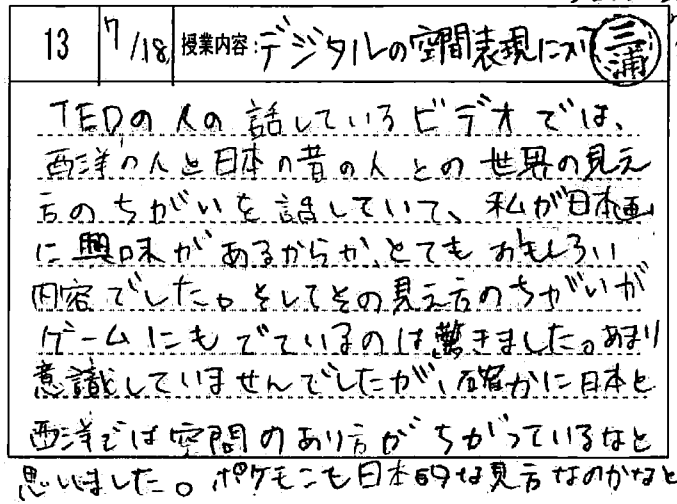 13 7/18 授業内容:デジタルの空間表現に 三浦
TEDの人の話しているビデオでは、
西洋の人と日本の昔の人との世界の見え
方のちがいを話していて、私が日本画
に興味があるからか、とてもおもしろい
内容でした。そしてその見え方のちがいが
ゲームにもでているのは驚きました。あまり
意識していませんでしたが、確かに日本と
西洋では空間のあり方がちがっているなと
思いました。ポケモンも日本的な見方なのかなと